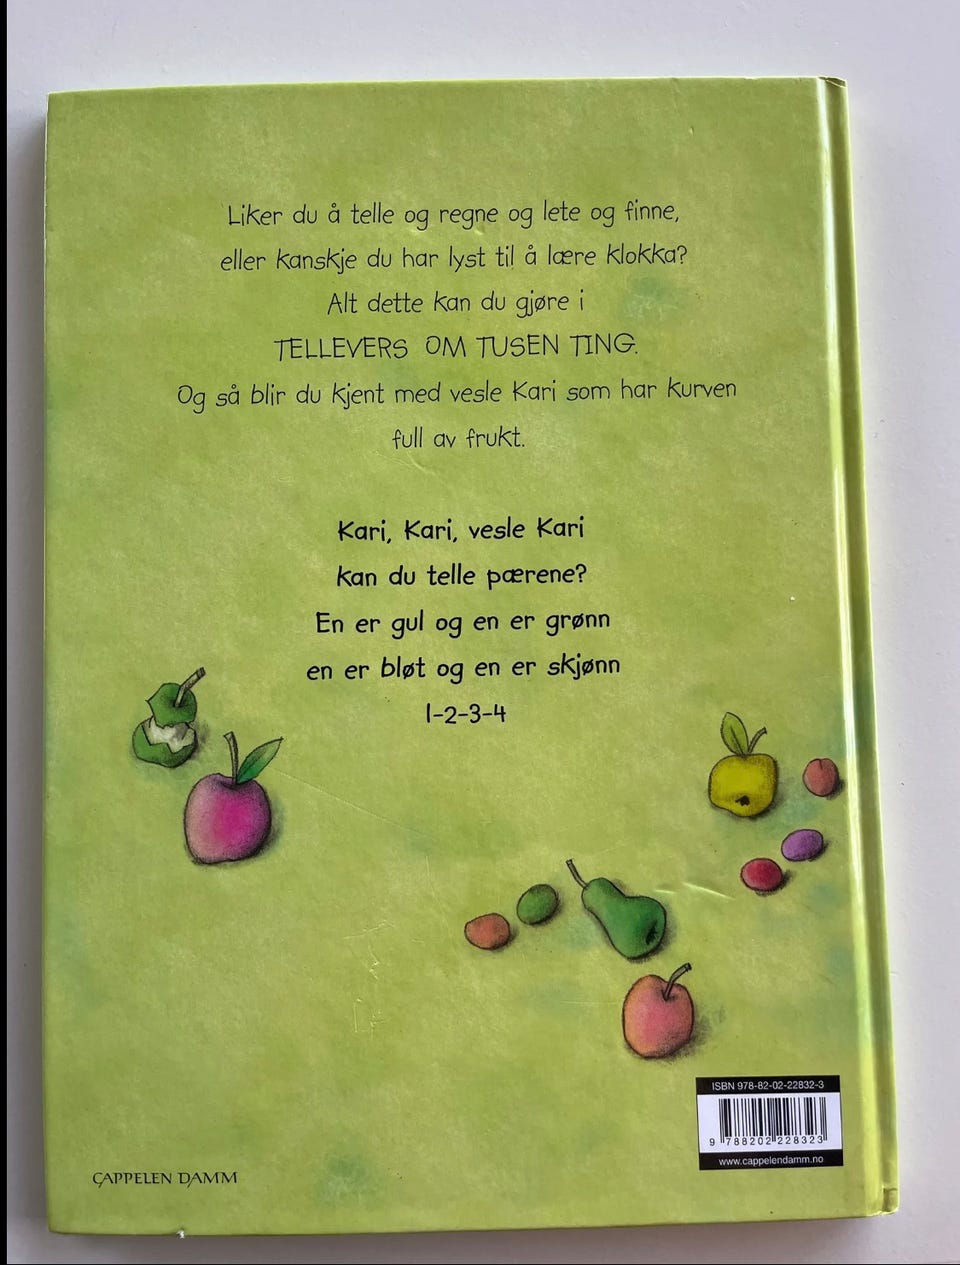 Liker du å telle og regne og lete og finne,
eller kanskje du har lyst til å lære klokka?
Alt dette kan du gjøre i
TELLEVERS OM TUSEN TING.
Og så blir du kjent med vesle Kari som har kurven
full av frukt.
Kari, Kari, vesle Kari
kan du telle pærene?
En er gul og en er grønn
en er bløt og en er skjønn
1-2-3-4
ISBN 978-82-02-22832-3
9 788202 228323
www.cappelendamm.no
CAPPELEN DAMM